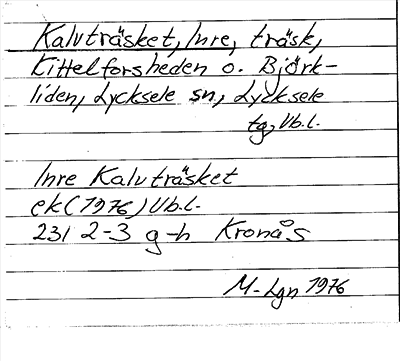 Kalvträsket, Inre, träsk,
Kittelforsheden o. Björk-
liden, Lycksele sn, Lycksele
tg, Vb.l.
Inre Kalvträsket
ek (1976) Vb.l.
231 2-3 g-h Kronås
M-Lgn 1976